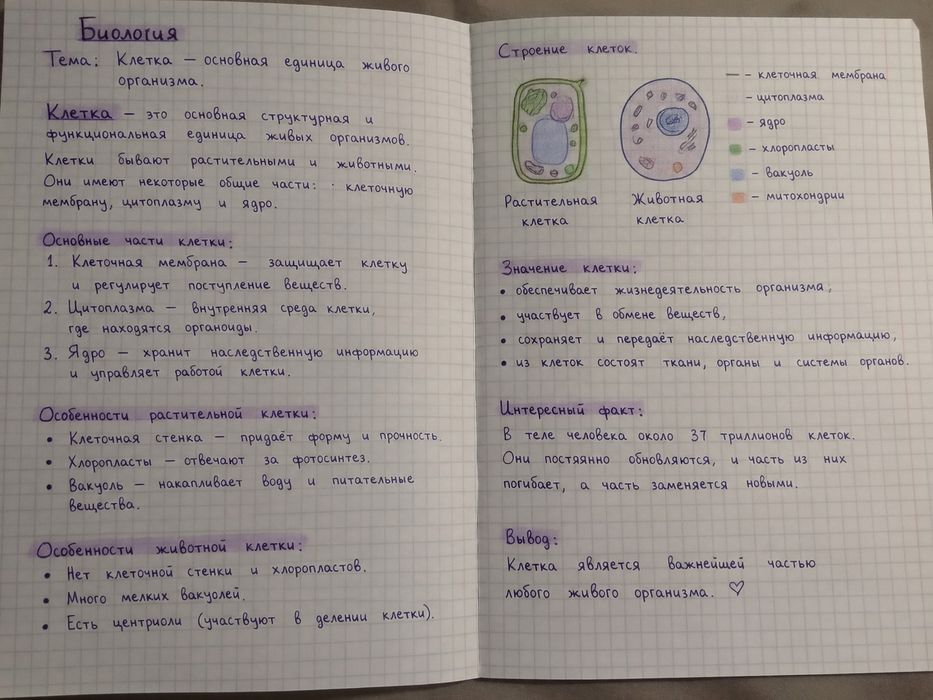 Биология
Тема: Клетка — основная единица живого
организма.
Клетка — это основная структурная и
функциональная единица живых организмов.
Клетки бывают растительными и животными.
Они имеют некоторые общие части: : клеточную
мембрану, цитоплазму и ядро.
Основные части клетки:
1. Клеточная мембрана — защищает клетку
и регулирует поступление веществ.
2. Цитоплазма — внутренняя среда клетки,
где находятся органоиды.
3. Ядро — хранит наследственную информацию
и управляет работой клетки.
Особенности растительной клетки:
• Клеточная стенка — придаёт форму и прочность.
• Хлоропласты — отвечают за фотосинтез.
• Вакуоль — накапливает воду и питательные
вещества.
Особенности животной клетки:
• Нет клеточной стенки и хлоропластов.
• Много мелких вакуолей.
• Есть центриоли (участвуют в делении клетки).
Строение клеток.
— - клеточная мембрана
- цитоплазма
- ядро
- хлоропласты
- вакуоль
- митохондрии
Растительная
клетка
Животная
клетка
Значение клетки:
• обеспечивает жизнедеятельность организма,
• участвует в обмене веществ,
• сохраняет и передаёт наследственную информацию,
• из клеток состоят ткани, органы и системы органов.
Интересный факт:
В теле человека около 37 триллионов клеток.
Они постяянно обновляются, и часть из них
погибает, а часть заменяется новыми.
Вывод:
Клетка является важнейщей частью
любого живого организма. ♡